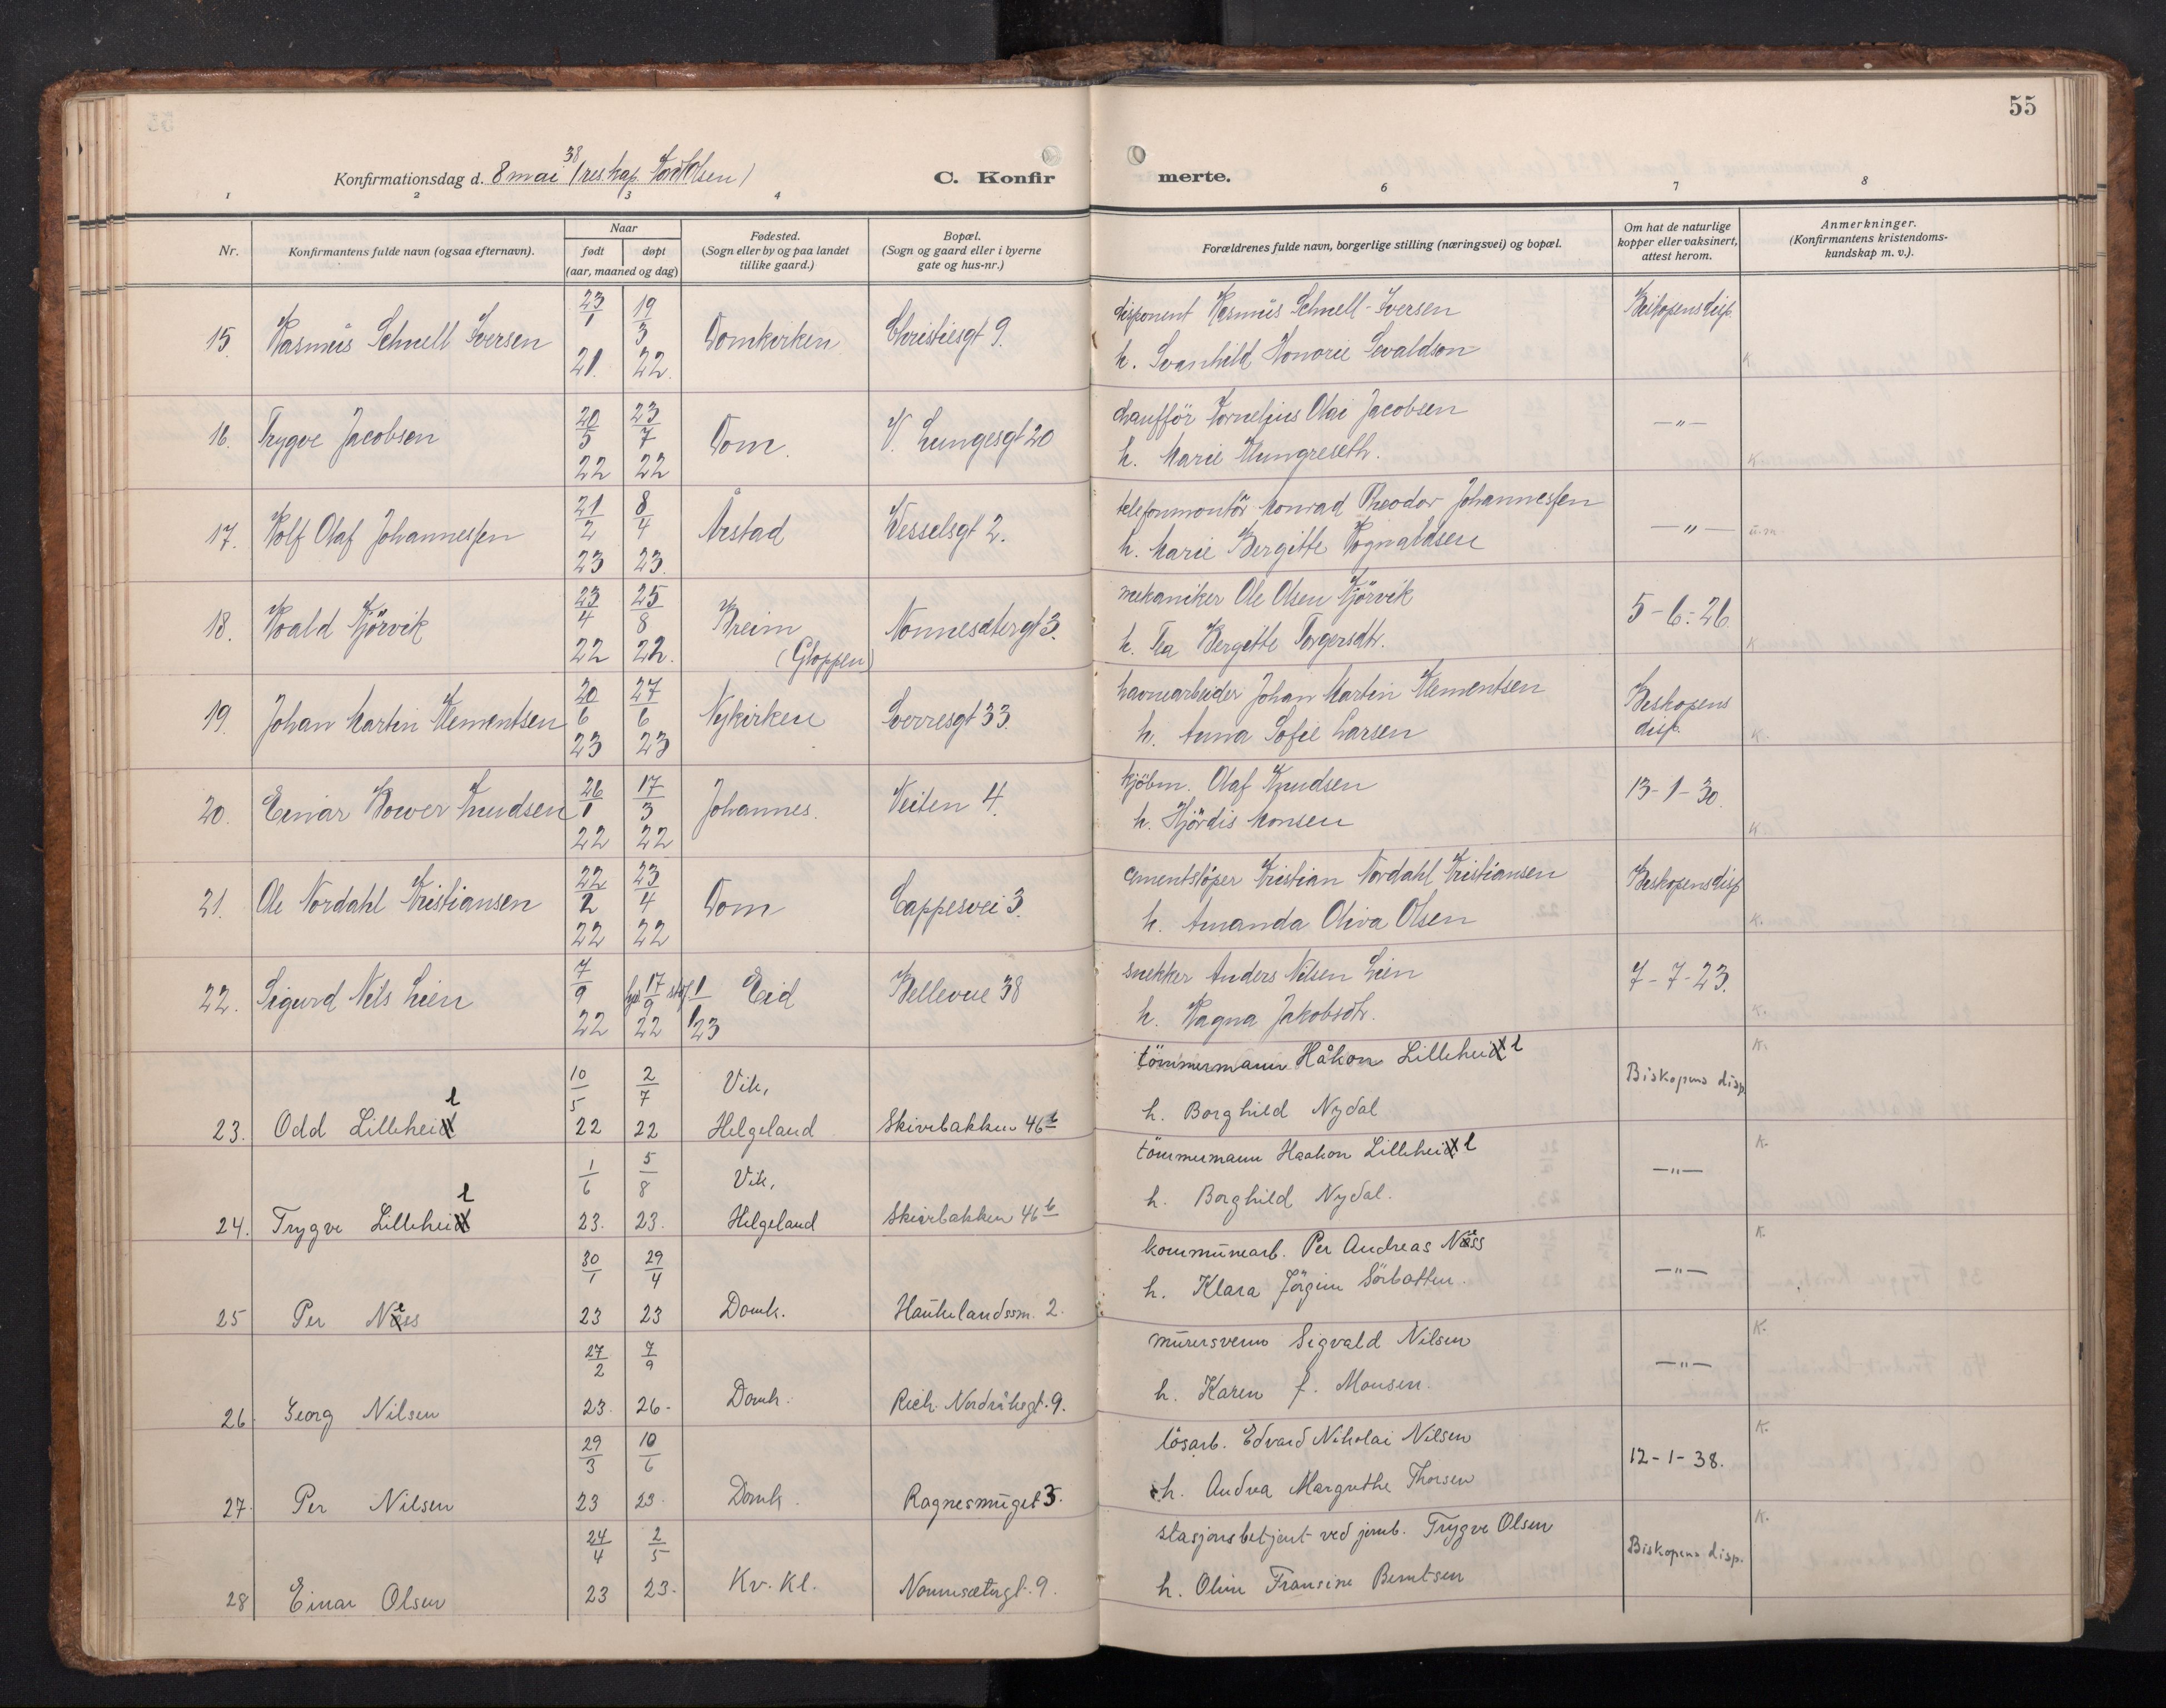 55
Konfirmationsdag d. 8 mai 38 (res. kap. Olsen)
C. Konfir merte.
1 2 3 4 6 7 8
Nr. Konfirmantens fulde navn (ogsaa efternavn). Naar født døpt (aar, maaned og dag) Fødested. (Sogn eller by og paa landet tillike gaard.) Bopæl. (Sogn og gaard eller i byerne gate og hus-nr.) Forældrenes fulde navn, borgerlige stilling (næringsvei) og bopæl. Om hat de naturlige kopper eller vaksinert, attest herom. Anmerkninger. (Konfirmantens kristendoms-kundskap m. v.).
15. Rasmus Schnell Iversen 23/1 21. 19/3 22. Domkirken Christiesgt 9. disponent Rasmus Schnell-Iversen Biskopens disp.
h. Svanhild Honorie Sevaldson K
16. Trygve Jacobsen 20/5 22 23/7 22 Dom. V. Lungesgt 20 chaufför Kornelius Olai Jacobsen —"—
h. Marie Mungreseth. K.
17. Rolf Olaf Johannessen 21/2 23 8/4 23. Årstad Wesselsgt 2. telefonmontör Konrad Theodor Johannessen —"—
h. Marie Bergitte Rognaldsen u.m
18. Roald Kjörvik 23/4 22 25/8 22. Breim (Gloppen) Nonnesetergt 3. mekaniker Ole Olsen Kjörvik 5-6-26.
h. Tea Bergitte Torgersdtr. K
19. Johan Martin Klementsen 20/6 23 27/6 23 Nykirken Sverresgt 33. havnearbeider Johan Martin Klementsen Biskopens disp.
h. Anna Sofie Larsen K.
20. Einar Bower Knudsen 26/1 22 17/3 22 Johannes. Veiten 4. kjöbm. Olaf Knudsen 13-1-30.
h. Hjördis Monsen K
21. Ole Nordahl Kristiansen 22/2 22 23/4 22 Dom Cappesvei 3. cementstöper Kristian Nordahl Kristiansen Biskopens disp
h. Amanda Oliva Olsen K.
22. Sigurd Nils Lien 7/9 22 hjd 17/9 22 stf 1/1 23 Eid Bellevue 38 snekker Anders Nilsen Lien 7-7-23.
h. Ragna Jakobsdtr. K.
23. Odd Lilleheil 10/5 22 2/7 22 Vik, Helgeland Skivebakken 46 b tömmermann Håkon Lilleheil Biskopens disp. K.
h. Borghild Nydal
24. Trygve Lilleheil 1/6 23. 5/8 23. Vik, Helgeland Skivebakken 46 b tömmermann Haakon Lilleheil —"— K.
h. Borghild Nydal.
25 Per Ness 30/1 23 29/4 23 Domk. Haukelandssm. 2. kommunearb. Per Andreas Ness —"— K.
h. Klara Jörgine Sörbotten.
26. Georg Nilsen 27/2 23. 7/9 26. Domk. Rich. Nordråksgt. 9. murersvenn Sigvald Nilsen —"— K.
h. Karen f. Monsen.
27. Per Nilsen 29/3 23 10/6 23. Domk. Ragnesmuget 3. lösarb. Edvard Nikolai Nilsen 12-1-38. K.
h. Andrea Margrethe Thorsen
28 Einar Olsen 24/4 23 2/5 23. Kv. Kl. Nonnesætergt. 9. stasjonsbetjent ved jernb. Trygve Olsen Biskopens disp. K.
h. Oline Fransine Berntsen